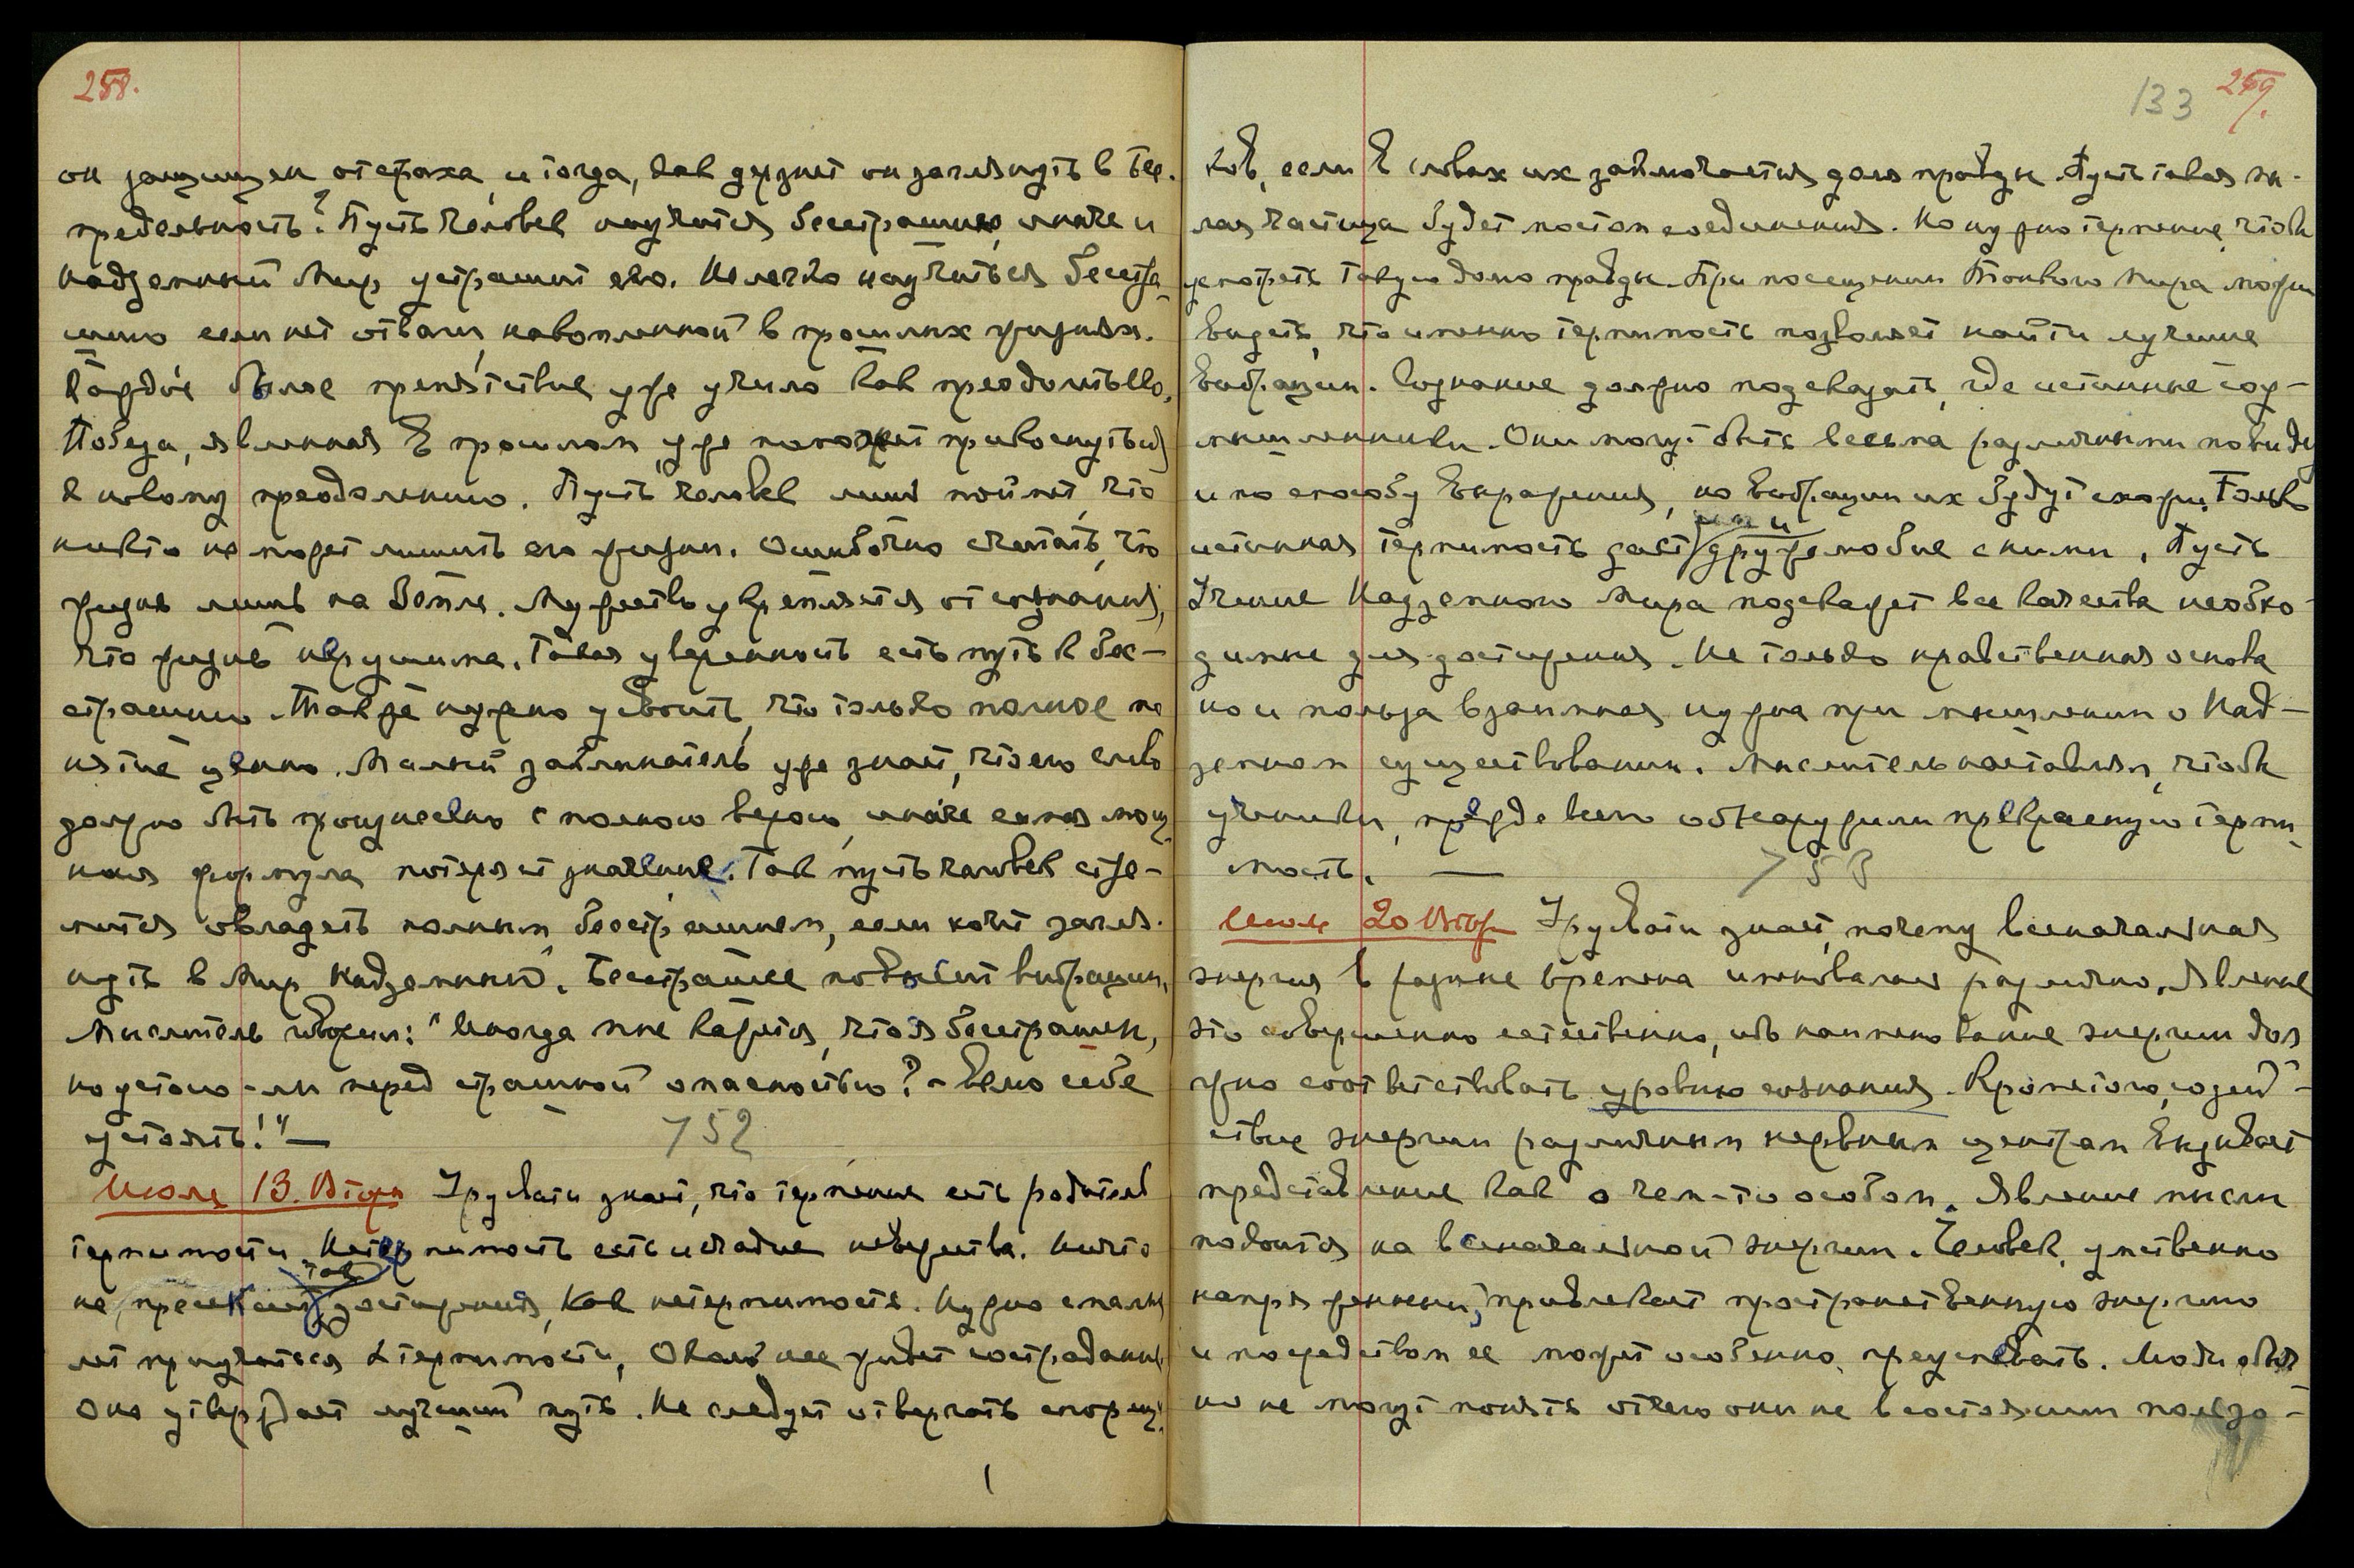 258.
он защищен от страха, и тогда, как дерзнет он заглянуть в Бес-
предельность? Пусть человек научится бесстрашию, иначе и
Надземный Мир устрашит его. Не легко научиться бесстра-
шию если нет отваги, накопленной в прошлых жизнях.
Каждое былое препятствие уже учило как преодолеть его.
Победа, явленная в прошлом, уже поможет прикоснуться
к новому преодолению. Пусть человек лишь поймет, что
никто не может лишить его жизни. Ошибочно считать, что
жизнь лишь на Земле. Мужество укрепляется от сознания,
что жизнь нерушима. Такая уверенность есть путь к бес-
страшию. Также нужно усвоить, что только полное по
нятие ценно. Малый заклинатель уже знает, что его слово
должно быть произнесено с полною верою, иначе самая мощ
ная формула потеряет значение. Так пусть человек стре-
мится овладеть полным бесстрашием, если хочет загля-
нуть в Мир Надземный. Бесстрашие повысит вибрации.
Мыслитель говорил: "Иногда мне кажется, что я бесстрашен,
но устою-ли перед страшной опасностью? - Велю себе
устоять!" —
752
Июля 13. Вторн Урусвати знает, что терпение есть родитель
терпимости. Нетерпимость есть исчадие невежества. Ничто
так
не пресекает достижения, как нетерпимость. Нужно с малых
лет приучаться к терпимости. Около нее живет сострадание.
Оно утверждает лучший путь. Не следует отвергать спорщи
133 259.
ков, если в словах их заключается доля правды. Пусть такая ма-
лая частица будет мостом соединения. Но нужно терпение, чтобы
усмотреть такую долю правды. При посещении Тонкого Мира можно
видеть, что именно терпимость позволяет найти лучшие
вибрации. Сознание должно подсказать, где истинные соу-
мышленники. Они могут быть весьма различными по виду
и по способу выражения, но вибрации их будут схожи. Только
истинная терпимость даст дружелюбие с ними. Пусть
Учение Надземного Мира подскажет все качества необхо-
димые для достижения. Не только нравственная основа
но и польза взаимная нужна при мышлении о Над-
земном существовании. Мыслитель наставлял, чтобы
ученики, прежде всего обнаружили прекрасную терпи
мость. —
753
Июля 20 Вторн Урусвати знает, почему всеначальная
энергия в разные времена именовалась различно. Явление
это совершенно естественно, ибо наименование энергии дол
жно соответствовать уровню сознания. Кроме того, воздей-
ствие энергии различным нервным центрам вызывает
представление как о чем-то особом. Явление мысли
покоится на всеначальной энергии. Человек, умственно
напряженный, привлекает пространственную энергию
и посредством ее может особенно преуспевать. Люди обыч
но не могут понять отчего они не в состоянии пользо-